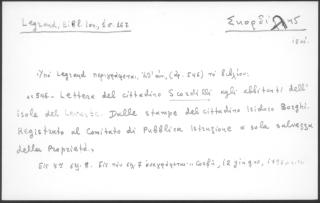 Legrand, Bibl. Ion., Σ. 167
Σκορδί 45
Ὑπὸ Legrand περιγράφεται, (ἀρ. 546) τὸ βιβλίον:
546. Lettera del cittadino Scordilli agli abbitanti dell'
isola del Levante. Dalle stampe del cittadino Isidoro Borghi.
Registrato al Comitato di Pubblica Istruzione a sola salvezza
della Proprietà.
Εἰς 4ον σελ. 8. Εἰς τὴν σελ. 7 ἀναγράφεται: Corfù, 12 giugno,